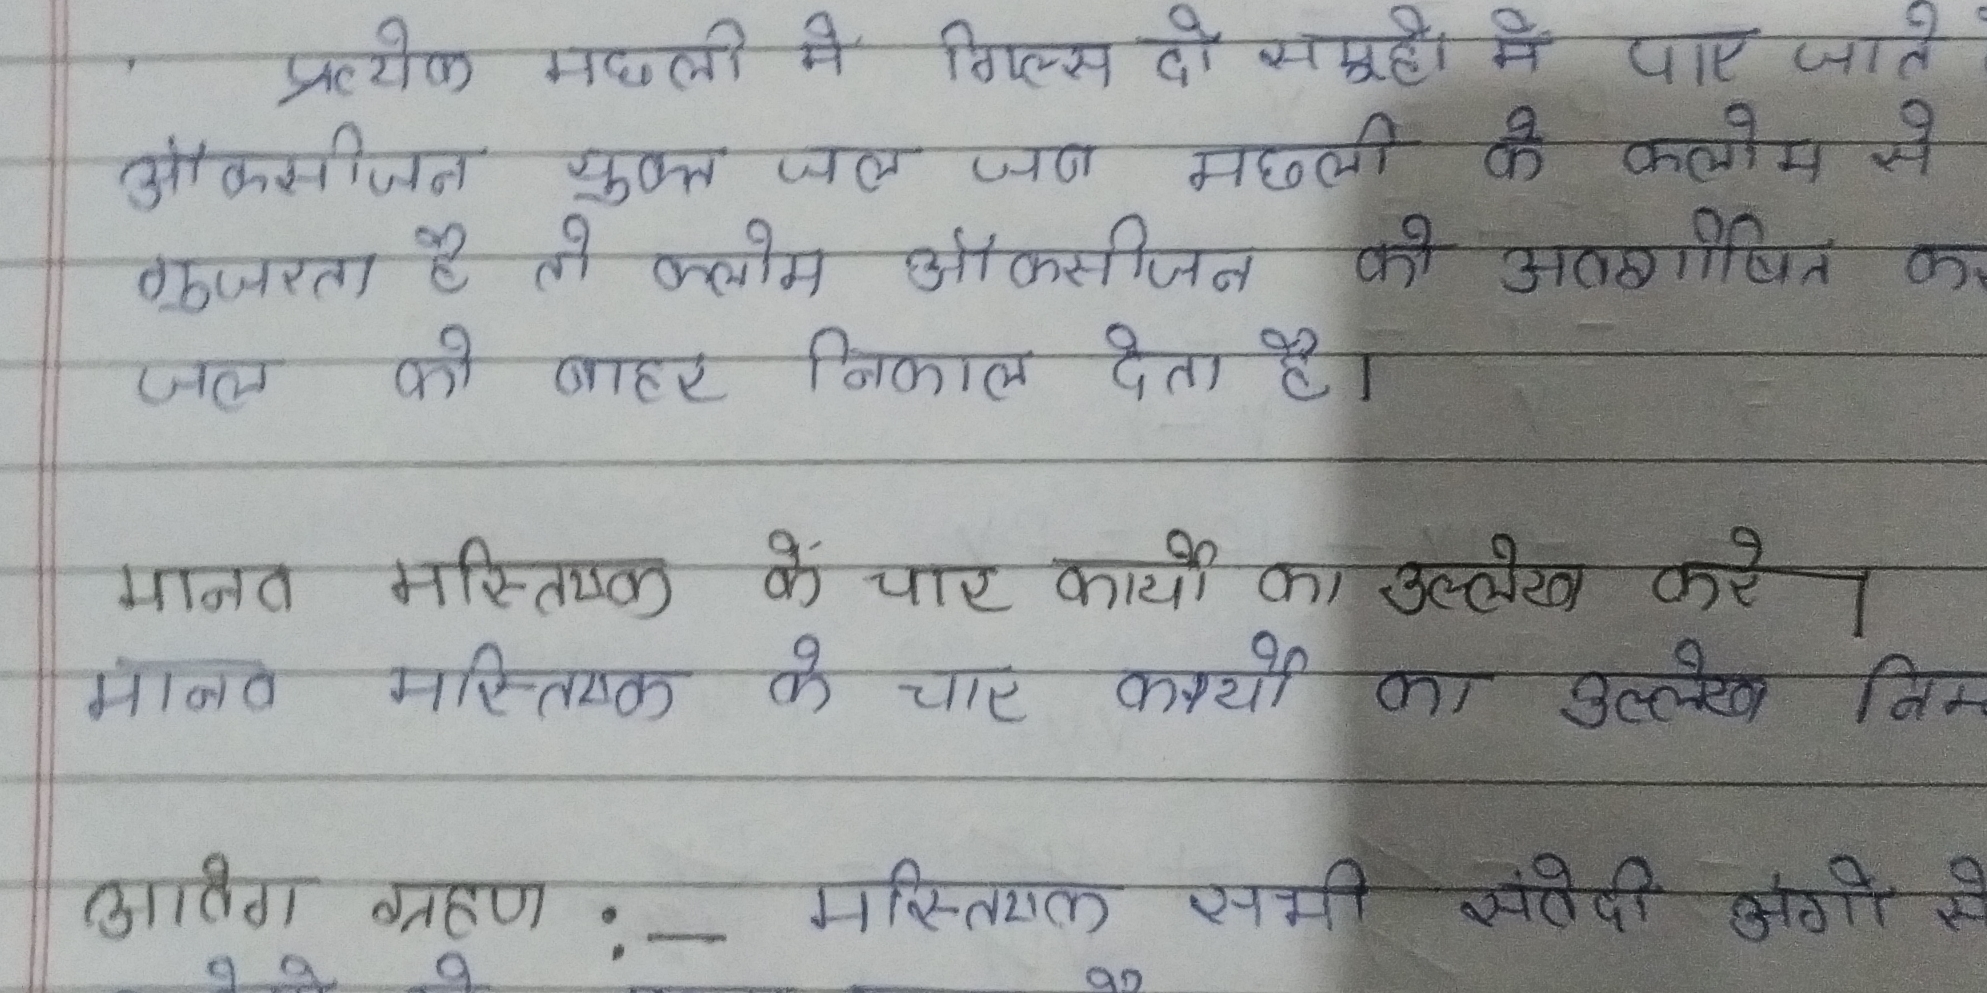 प्रत्येक मछली मे गिल्स दो समूहो में पाए जाते
ऑकसीजन युक्त जल जब मछली के कलोम से
गुजरता है तो क्लोम ऑकसीजन को अवशोषित कर
जल को बाहर निकाल देता है।
मानव मस्तिष्क कें चार कार्यो का उल्लेख करे ।
मानव मस्तिष्क के चार कार्यो का उल्लेख निम्
आवेग ग्रहण :— मस्तिष्क सभी संवेदी अंगो से